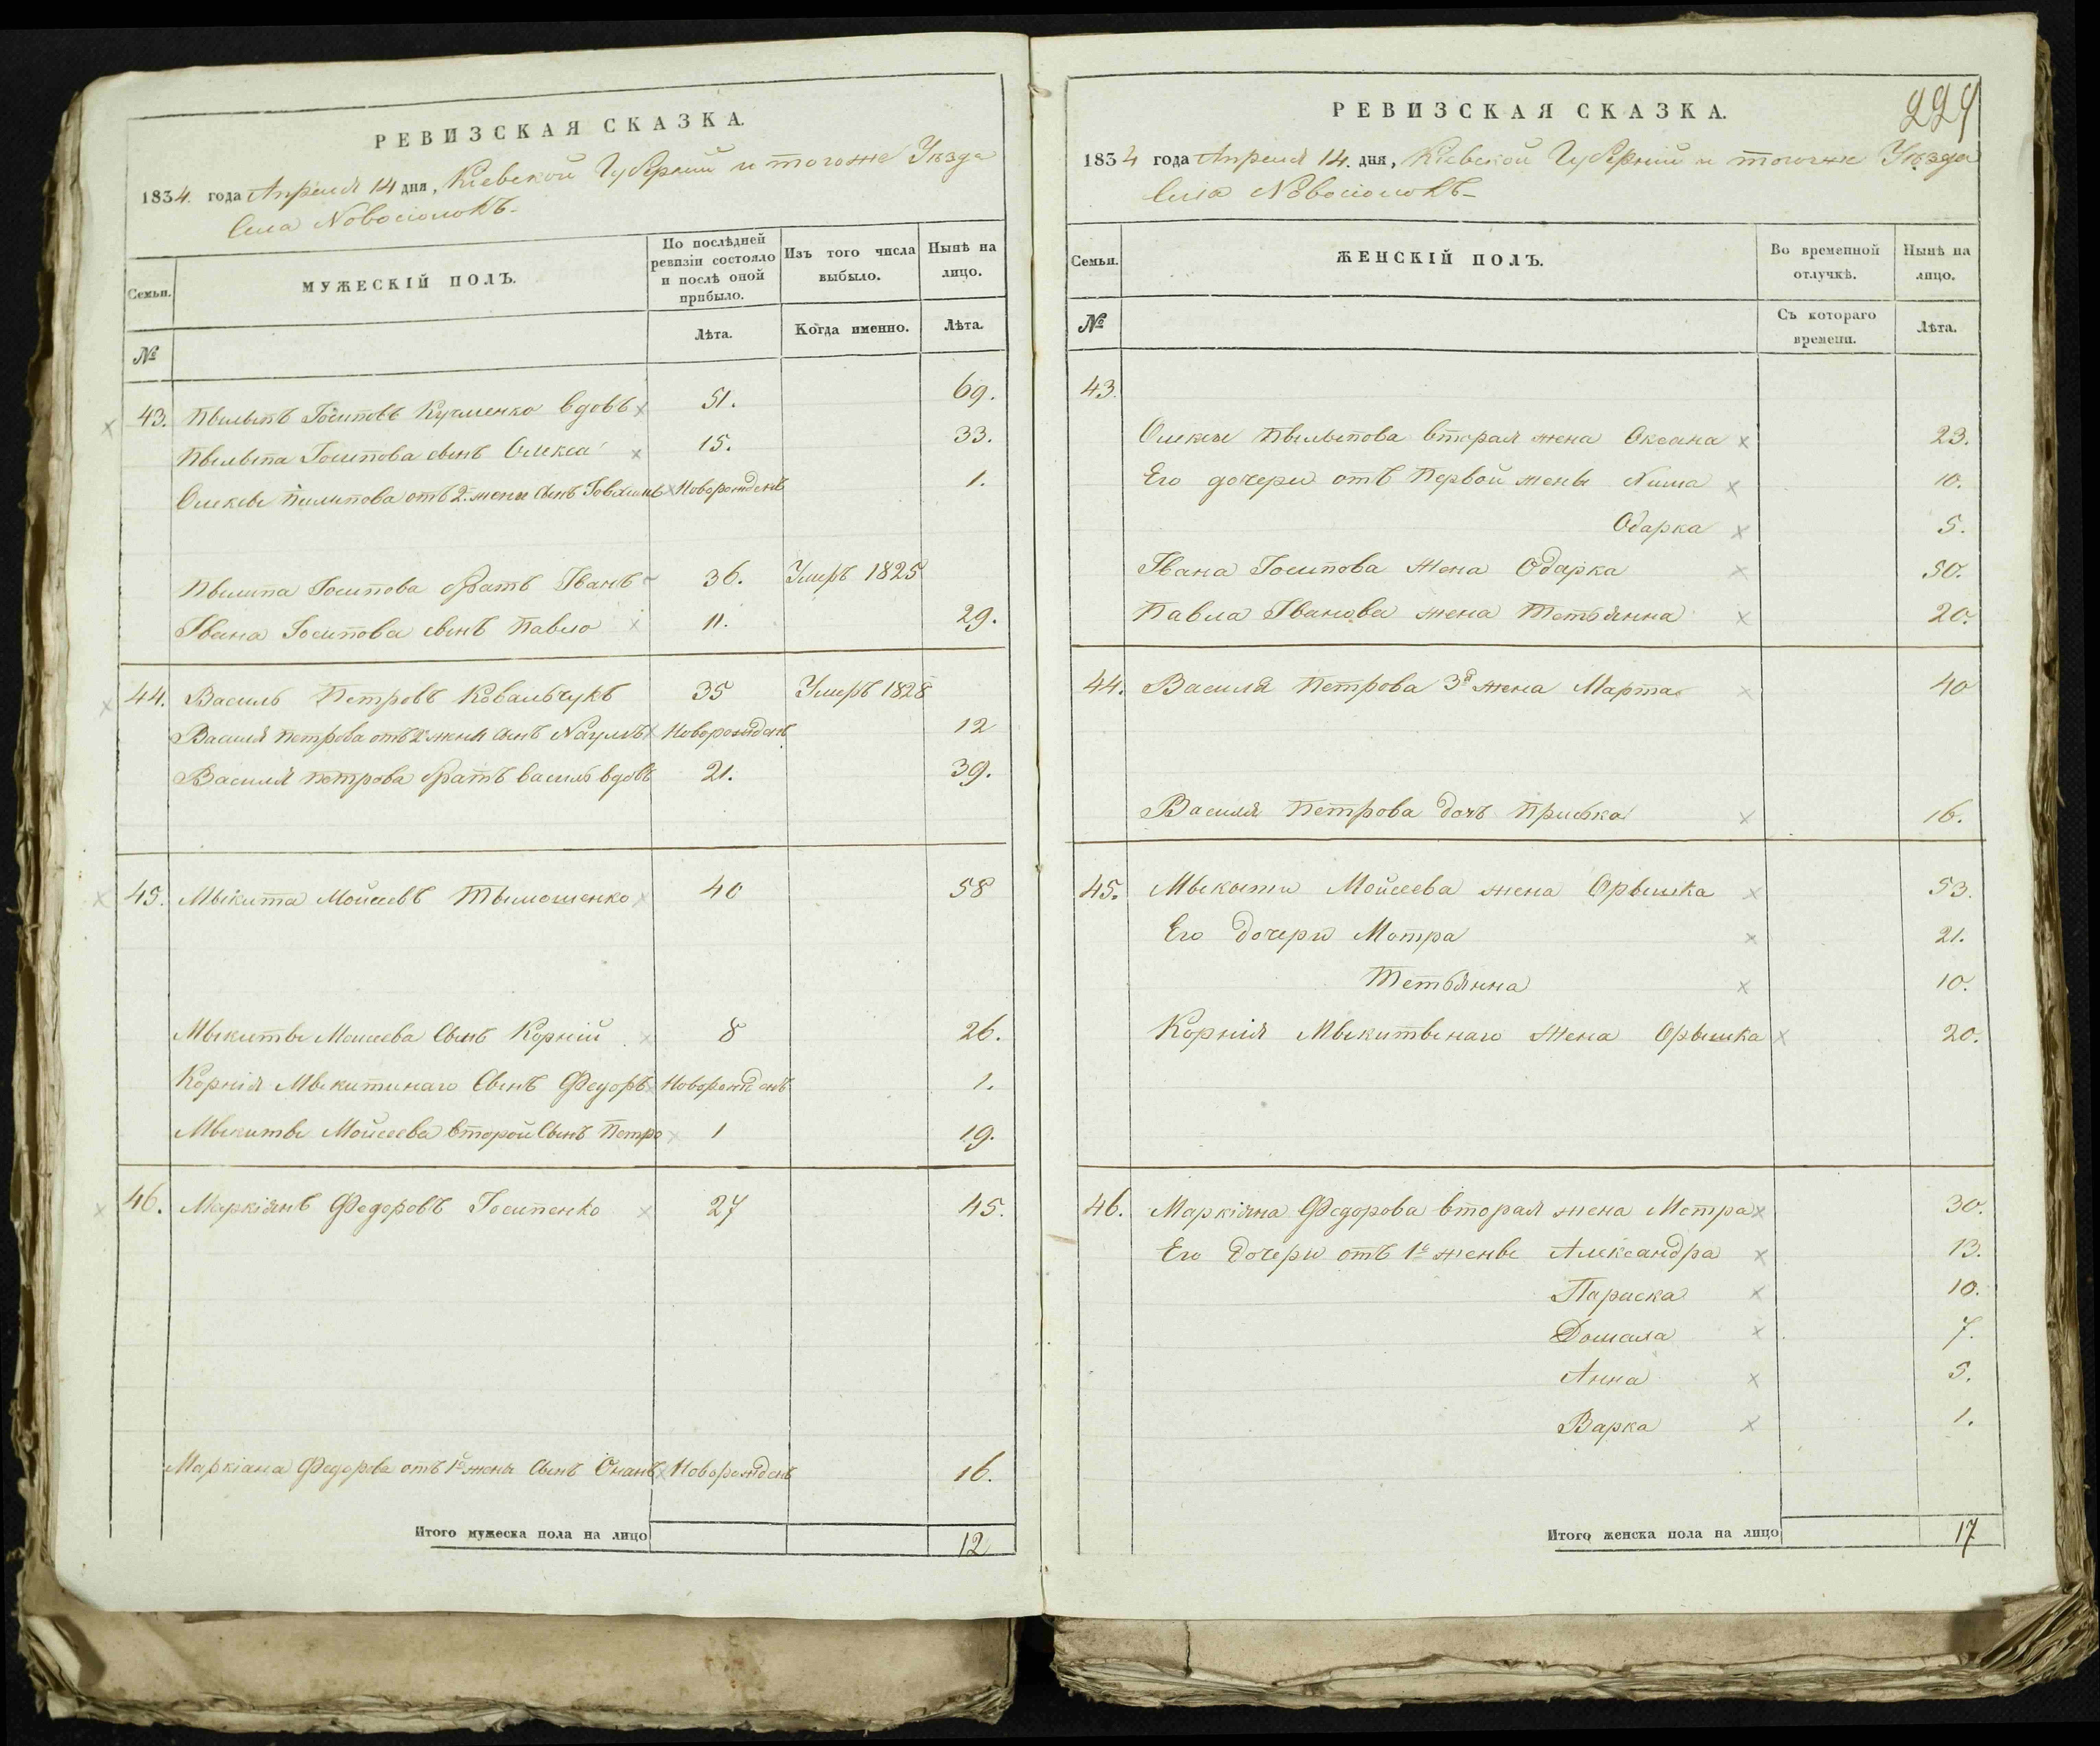 РЕВИЗСКАЯ СКАЗКА.
1834. года Апреля 14 дня, Кіевской Губерніи и тогоже Уѣзда
Села Новосіолокъ
Семьи.
МУЖЕСКІЙ ПОЛЪ.
По послѣдней ревизіи состояло и послѣ оной прибыло.
Изъ того числа выбыло.
Нынѣ на лицо.
№
Лѣта.
Когда именно.
Лѣта.
43. Пылыпъ Іосиповъ Кучменко вдовъ 51. 69.
Пылыпа Іосипова сынъ Олекса 15. 33.
Олексы Пилипова отъ 2. жены сынъ Новорожденъ 1.
Пылипа Іосипова братъ Іванъ 36. Умеръ 1825
Івана Іосипова сынъ Павло 11. 29.
44. Василь Петровъ Ковальчукъ 35 Умеръ 1828
Василя Петрова отъ 2 жены сынъ Наумъ Новорожденъ 12
Василя Петрова братъ Василь вдовъ 21. 39.
45. Мыкита Мойсеевъ Тымошенко 40 58
Мыкиты Моисеева Сынъ Корній 8 26.
Корнія Мыкитинаго Сынъ Федоръ Новорожденъ 1.
Мыкиты Мойсеева второй Сынъ Петро 1 19.
46. Маркіянъ Федоровъ Іосипенко 27 45.
Маркіана Федорова отъ 1й жены Сынъ Новорожденъ 16.
Итого мужеска пола на лицо 12
РЕВИЗСКАЯ СКАЗКА.
1834 года Апреля 14. дня, Кіевской Губерніи и тогоже Уѣзда
Села Новосіолокъ
Семьи.
ЖЕНСКІЙ ПОЛЪ.
Во временной отлучкѣ.
Нынѣ на лицо.
№
Съ котораго времени.
Лѣта.
43.
Олексы Пылыпова вторая жена Оксана 23.
Его дочери отъ Первой жены 10.
Одарка 5.
Івана Іосипова Жена Одарка 50.
Павла Іванова жена Тетьянна 20.
44. Василя Петрова 3я жена Марта 40
Василя Петрова дочь Приська 16.
45. Мыкыты Мойсеева жена Орышка 53.
Его дочери Мотра 21.
Тетьянна 10.
Корнія Мыкитынаго Жена Орышка 20.
46. Маркіяна Федорова вторая жена Мотра 30.
Его дочери отъ 1й жены Александра 13.
Параска 10.
7.
Анна 5.
Варка 1.
Итого женска пола на лицо 17